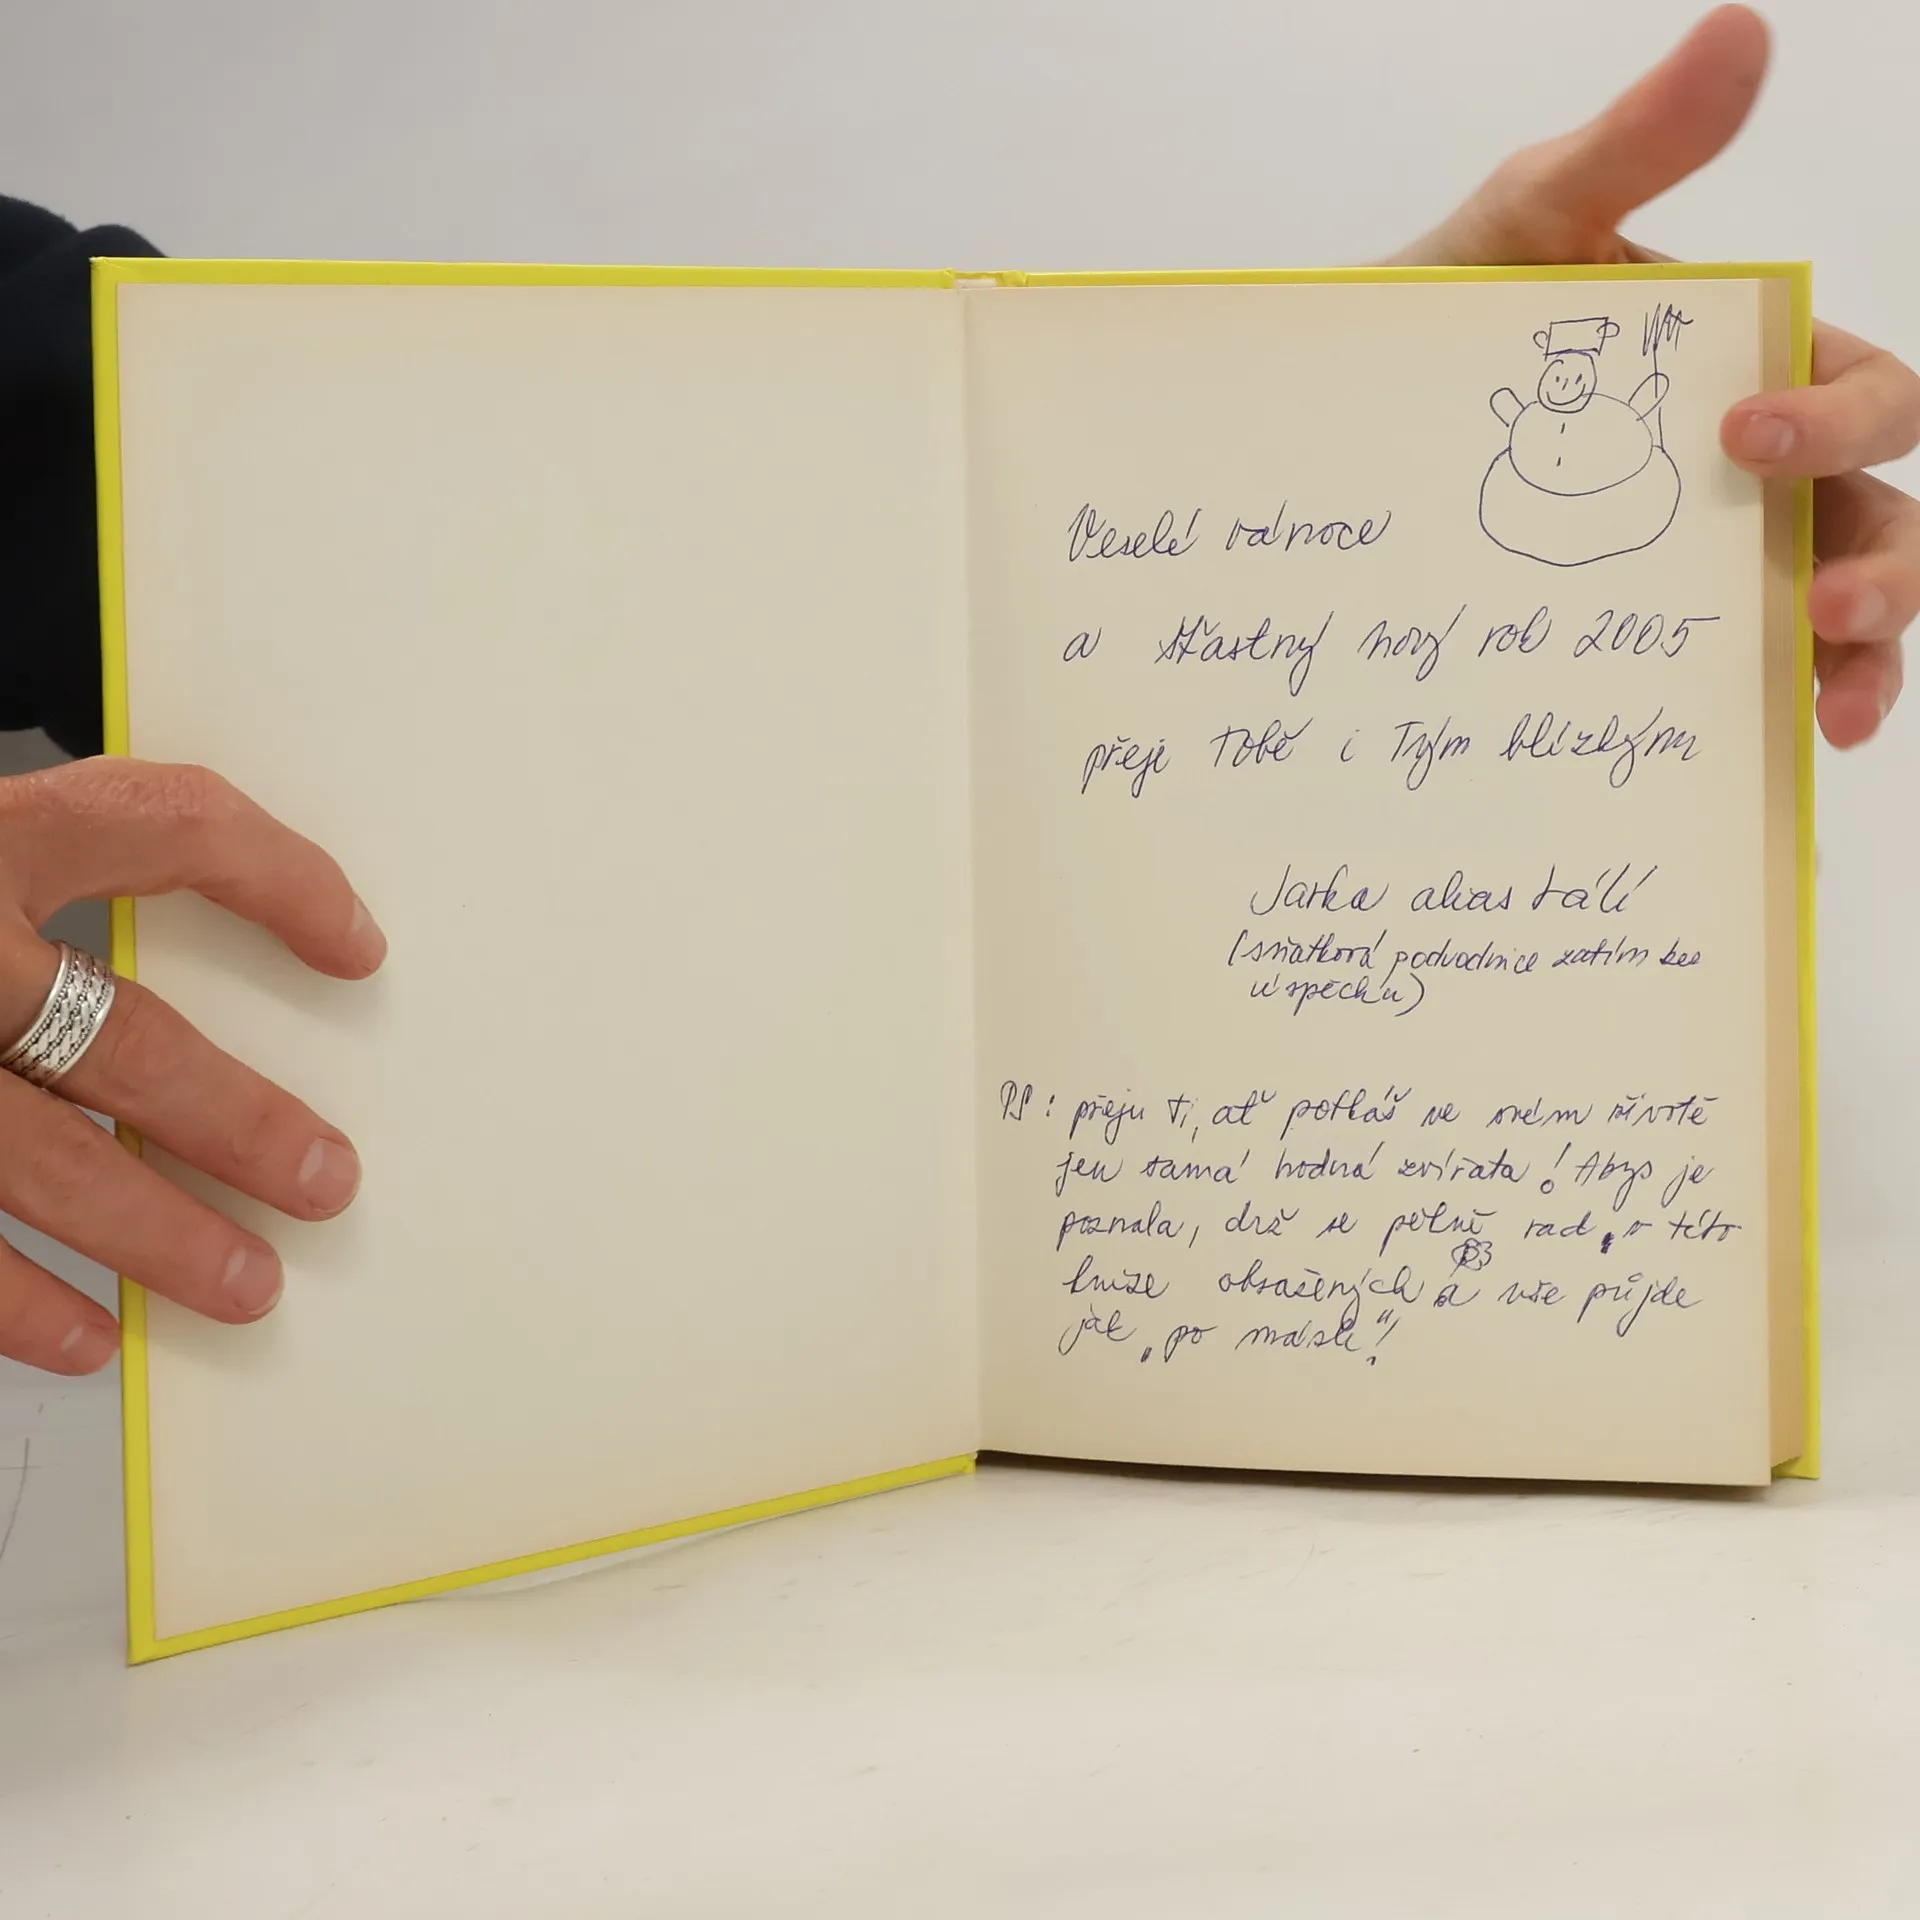 Veselé vánoce
a šťastný nový rok 2005
přeje Tobě i Tvým blízkým
Jarka alias
(sňatková podvodnice zatím bez
úspěchu)
PS: přeju ti, ať potkáš ve svém životě
jen samá hodná zvířata! Abys je
poznala, drž se pěkně rad v této
knize obsažených a vše půjde
jak „po másle“!